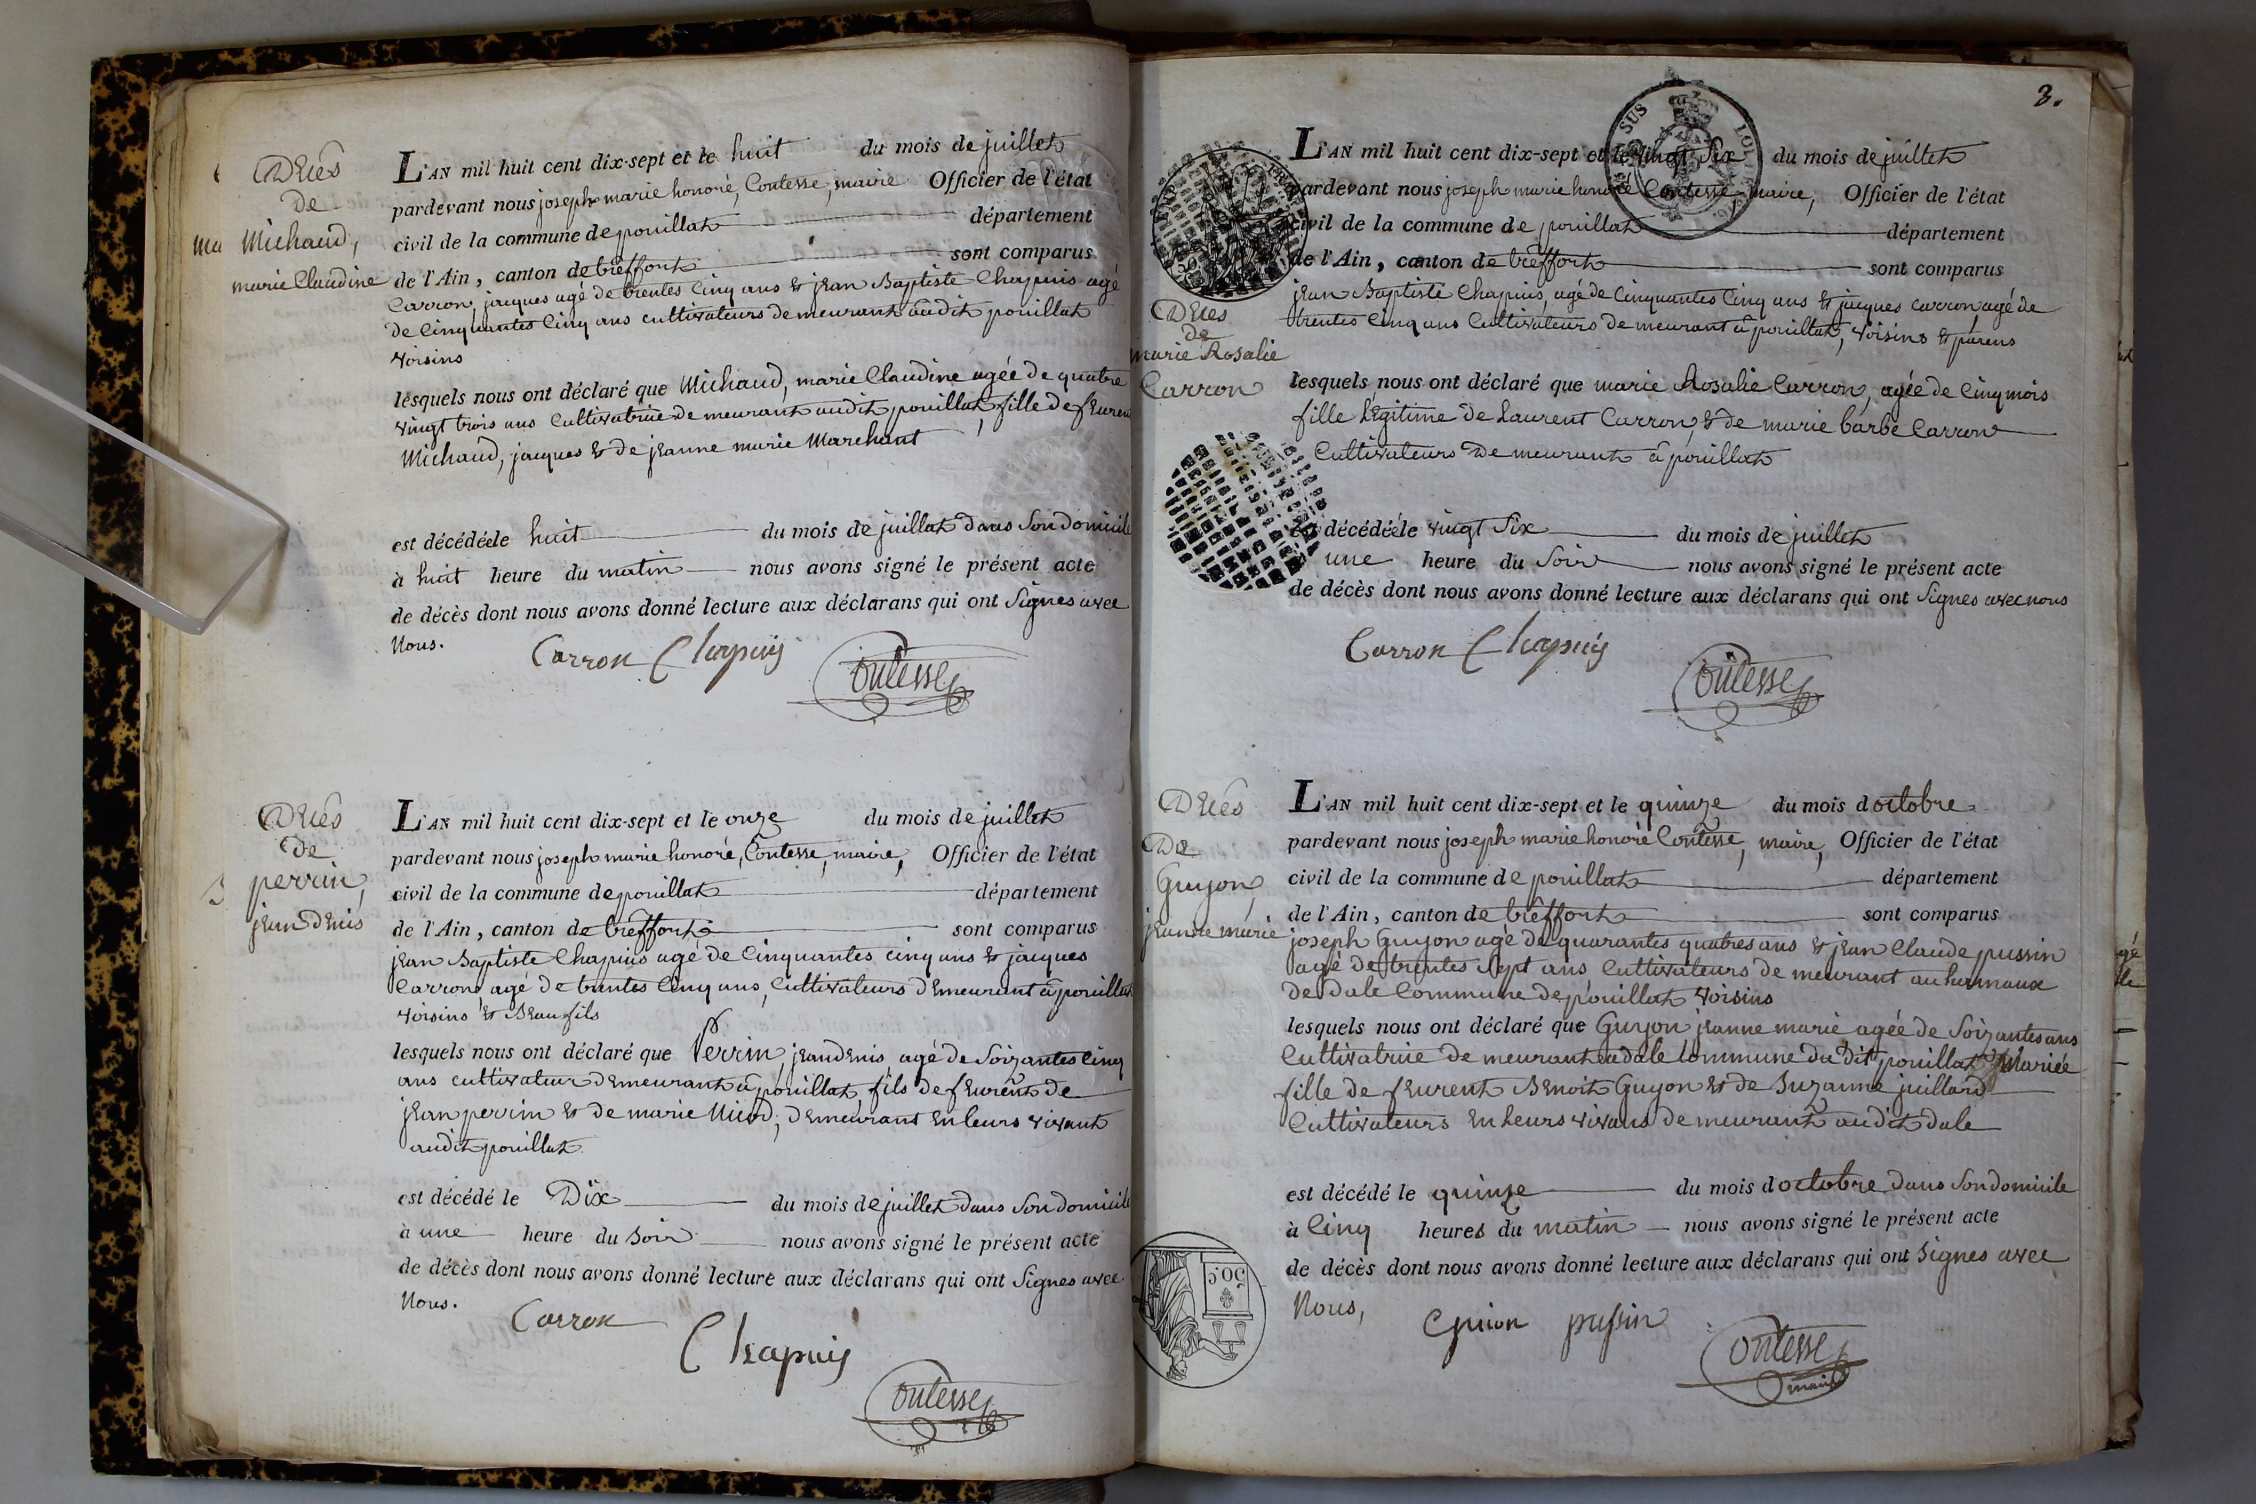 Décès
de
Michaud,
marie Claudine
L'AN mil huit cent dix-sept et le huit du mois de juillet
pardevant nous joseph marie honoré, Contesse, maire Officier de l'état
civil de la commune de pouillat département
de l'Ain, canton de treffort sont comparus
Carron, jacques agé de trentes Cinq ans & jean Baptiste Chapuis agé
de Cinquantes Cinq ans cultivateurs demeurant audit pouillat
voisins
lesquels nous ont déclaré que Michaud, marie Claudine agée de quatre
vingt trois ans Cultivatrice demeurant audit pouillat, fille de feurent
Michaud, jacques & de jeanne marie Marchant
est décédée le huit du mois de juillet dans son domicile
à huit heure du matin nous avons signé le présent acte
de décès dont nous avons donné lecture aux déclarans qui ont signes avec
Nous.
Carron Chapuis
Contesse
Décès
de
perrin,
jean denis
L'AN mil huit cent dix-sept et le onze du mois de juillet
pardevant nous joseph marie honoré, Contesse, maire, Officier de l'état
civil de la commune de pouillat département
de l'Ain, canton de treffort sont comparus
jean Baptiste Chapuis agé de Cinquantes cinq ans & jacques
Carron agé de trentes Cinq ans, Cultivateurs demeurant à pouillat
voisins & Beau fils
lesquels nous ont déclaré que Perrin, jean denis agé de Soizantes Cinq
ans cultivateur demeurant à pouillat, fils de feurent de
jean perrin & de marie Nicod, demeurant en leurs vivant
audit pouillat
est décédé le Dix du mois de juillet dans son domicile
à une heure du soir nous avons signé le présent acte
de décès dont nous avons donné lecture aux déclarans qui ont signes avec
Nous.
Carron
Chapuis
Contesse
3.
Décès
de
marie Rosalie
Carron
L'AN mil huit cent dix-sept et le vingt six du mois de juillet
pardevant nous joseph marie honoré Contesse, maire, Officier de l'état
civil de la commune de pouillat département
de l'Ain, canton de treffort sont comparus
jean Baptiste Chapuis, agé de Cinquantes Cinq ans & jacques carron agé de
trentes Cinq ans Cultivateurs demeurant à pouillat, voisins & parens
lesquels nous ont déclaré que marie Rosalie Carron, agée de Cinq mois
fille légitime de Laurent Carron & de marie barbe Carron
Cultivateurs demeurant à pouillat
décédée le vingt six du mois de juillet
une heure du soir nous avons signé le présent acte
de décès dont nous avons donné lecture aux déclarans qui ont signes avec nous
Carron Chapuis
Contesse
Décès
De
Guyon,
jeanne marie
L'AN mil huit cent dix-sept et le quinze du mois d'octobre
pardevant nous joseph marie honoré Contesse, maire, Officier de l'état
civil de la commune de pouillat département
de l'Ain, canton de treffort sont comparus
joseph Guyon agé de quarantes quatres ans & jean Claude pussin
agé de trentes sept ans Cultivateurs demeurant au hammaux
de dale Commune de pouillat voisins
lesquels nous ont déclaré que Guyon jeanne marie agée de Soizantes ans
Cultivatrice demeurant a dale Commune du dit pouillat Mariée
fille de feurent Benoit Guyon & de Suzanne juillard
Cultivateurs en leurs vivans demeurant audit dale
est décédé le quinze du mois d'octobre dans son domicile
à Cinq heures du matin nous avons signé le présent acte
de décès dont nous avons donné lecture aux déclarans qui ont signes avec
Nous,
Guion pussin
Contesse
maire
50.C